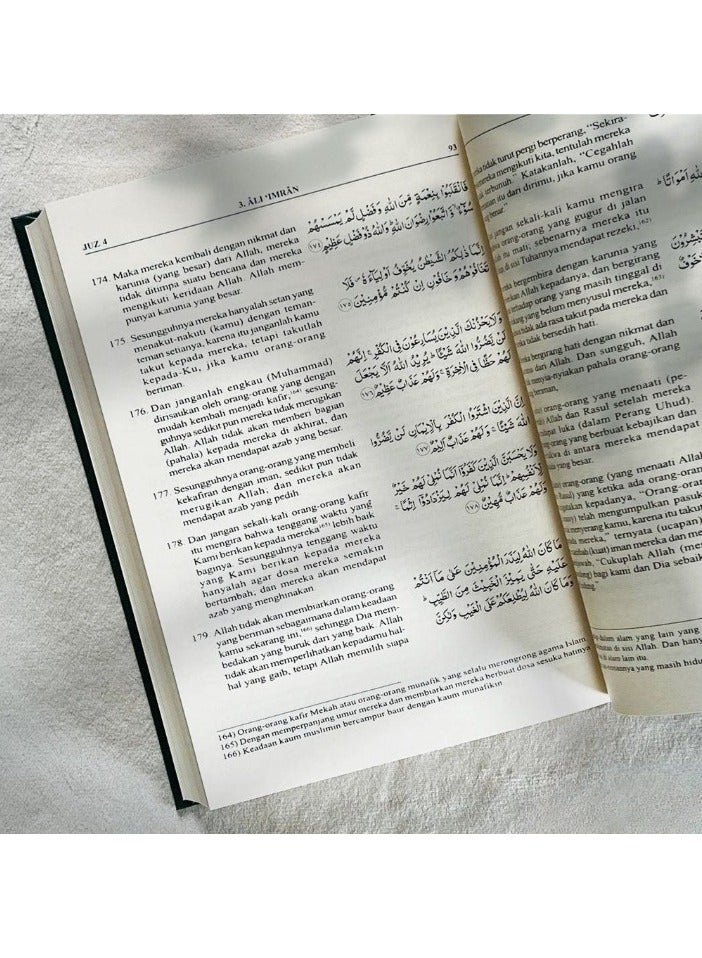 JUZ 4
3. ÂLI ‘IMRÂN
93
174. Maka mereka kembali dengan nikmat dan
karunia (yang besar) dari Allah, mereka
tidak ditimpa suatu bencana dan mereka
mengikuti keridaan Allah. Allah mem-
punyai karunia yang besar.
175 Sesungguhnya mereka hanyalah setan yang
menakut-nakuti (kamu) dengan teman-
teman setianya, karena itu janganlah kamu
takut kepada mereka, tetapi takutlah
kepada-Ku, jika kamu orang-orang
beriman.
176. Dan janganlah engkau (Muhammad)
dirisaukan oleh orang-orang yang dengan
mudah kembali menjadi kafir,164) sesung-
guhnya sedikit pun mereka tidak merugikan
Allah. Allah tidak akan memberi bagian
(pahala) kepada mereka di akhirat, dan
mereka akan mendapat azab yang besar.
177. Sesungguhnya orang-orang yang membeli
kekafiran dengan iman, sedikit pun tidak
merugikan Allah, dan mereka akan
mendapat azab yang pedih
178 Dan jangan sekali-kali orang-orang kafir
itu mengira bahwa tenggang waktu yang
Kami berikan kepada mereka165) lebih baik
baginya. Sesungguhnya tenggang waktu
yang Kami berikan kepada mereka
hanyalah agar dosa mereka semakin
bertambah, dan mereka akan mendapat
azab yang menghinakan
179. Allah tidak akan membiarkan orang-orang
yang beriman sebagaimana dalam keadaan
kamu sekarang ini,166) sehingga Dia mem-
bedakan yang buruk dari yang baik Allah
tidak akan memperlihatkan kepadamu hal-
hal yang gaib, tetapi Allah memilih siapa
فَانْقَلَبُوْا بِنِعْمَةٍ مِّنَ اللّٰهِ وَفَضْلٍ لَّمْ يَمْسَسْهُمْ
سُوْۤءٌۙ وَّاتَّبَعُوْا رِضْوَانَ اللّٰهِ ۗوَاللّٰهُ ذُوْ فَضْلٍ عَظِيْمٍ ﴿١٧٤﴾
اِنَّمَا ذٰلِكُمُ الشَّيْطٰنُ يُخَوِّفُ اَوْلِيَاۤءَهٗۖ فَلَا
تَخَافُوْهُمْ وَخَافُوْنِ اِنْ كُنْتُمْ مُّؤْمِنِيْنَ ﴿١٧٥﴾
وَلَا يَحْزُنْكَ الَّذِيْنَ يُسَارِعُوْنَ فِى الْكُفْرِۚ اِنَّهُمْ
لَنْ يَّضُرُّوا اللّٰهَ شَيْـًٔاۗ يُرِيْدُ اللّٰهُ اَلَّا يَجْعَلَ
لَهُمْ حَظًّا فِى الْاٰخِرَةِۚ وَلَهُمْ عَذَابٌ عَظِيْمٌ ﴿١٧٦﴾
اِنَّ الَّذِيْنَ اشْتَرَوُا الْكُفْرَ بِالْاِيْمَانِ لَنْ يَّضُرُّوا
اللّٰهَ شَيْـًٔاۚ وَلَهُمْ عَذَابٌ اَلِيْمٌ ﴿١٧٧﴾
وَلَا يَحْسَبَنَّ الَّذِيْنَ كَفَرُوْٓا اَنَّمَا نُمْلِيْ لَهُمْ خَيْرٌ
لِّاَنْفُسِهِمْ ۗ اِنَّمَا نُمْلِيْ لَهُمْ لِيَزْدَادُوْٓا اِثْمًاۚ
وَلَهُمْ عَذَابٌ مُّهِيْنٌ ﴿١٧٨﴾
مَا كَانَ اللّٰهُ لِيَذَرَ الْمُؤْمِنِيْنَ عَلٰى مَآ اَنْتُمْ
عَلَيْهِ حَتّٰى يَمِيْزَ الْخَبِيْثَ مِنَ الطَّيِّبِ ۗ
وَمَا كَانَ اللّٰهُ لِيُطْلِعَكُمْ عَلَى الْغَيْبِ وَلٰكِنَّ
164) Orang-orang kafir Mekah atau orang-orang munafik yang selalu merongrong agama Islam
165) Dengan memperpanjang umur mereka dan membiarkan mereka berbuat dosa sesuka hatinya
166) Keadaan kaum muslimin bercampur baur dengan kaum munafikin
tidak turut pergi berperang, “Sekira-
mengikuti kita, tentulah mereka
terbunuh.” Katakanlah, “Cegahlah
itu dari dirimu, jika kamu orang
jangan sekali-kali kamu mengira
orang-orang yang gugur di jalan
mati; sebenarnya mereka itu
di sisi Tuhannya mendapat rezeki,162)
bergembira dengan karunia yang
Allah kepadanya, dan bergirang
terhadap orang yang masih tinggal di
yang belum menyusul mereka,163)
tidak ada rasa takut pada mereka dan
tidak bersedih hati.
bergirang hati dengan nikmat dan
dari Allah. Dan sungguh, Allah
menyia-nyiakan pahala orang-orang
beriman,
orang-orang yang menaati (pe-
Allah dan Rasul setelah mereka
luka (dalam Perang Uhud).
yang berbuat kebajikan dan
di antara mereka mendapat
besar.
orang-orang (yang menaati Allah
Rasul) yang ketika ada orang-orang
kepadanya, “Orang-orang
telah mengumpulkan pasukan
menyerang kamu, karena itu takutlah
mereka,” ternyata (ucapan)
(kuat) iman mereka dan mereka
“Cukuplah Allah (menjadi
bagi kami dan Dia sebaik-
dalam alam yang lain yang
di sisi Allah. Dan hanya
di alam lain itu.
yang masih hidup